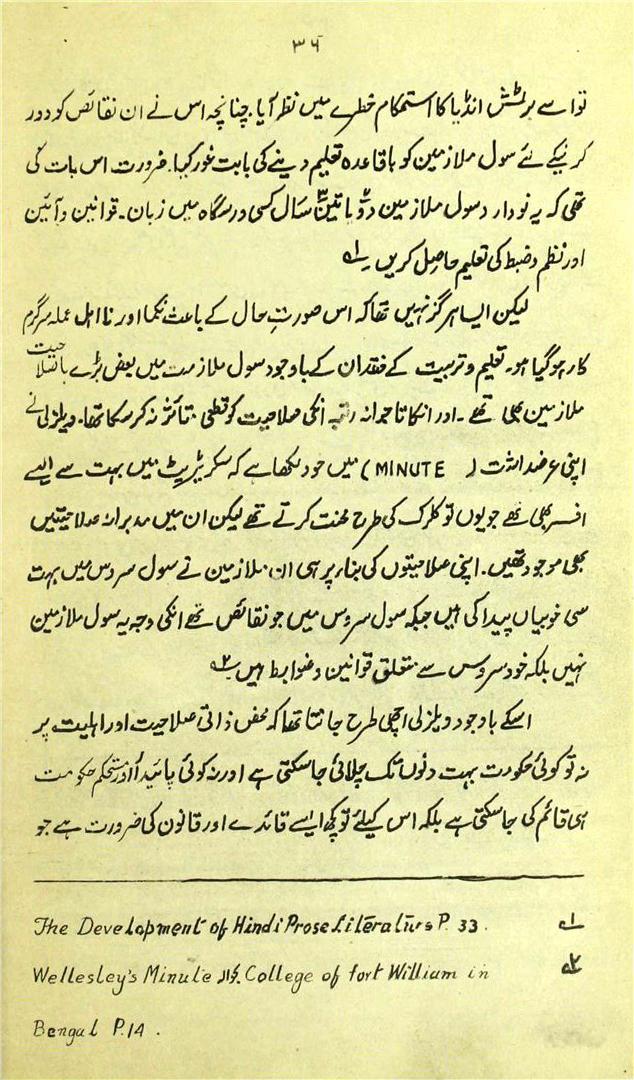 ۳۶
تو اسے برٹش انڈیا کا استحکام خطرے میں نظر آیا۔ چنانچہ اس نے ان نقائص کو دور
کرنیکے لئے سول ملازمین کو باقاعدہ تعلیم دینے کی بابت غور کیا۔ ضرورت اس بات کی
تھی کہ یہ نودارد سول ملازمین دو یا تین سال کسی درسگاہ میں زبان۔ قوانین و آئین
اور نظم و ضبط کی تعلیم حاصل کریں۔ ۱؎
لیکن ایسا ہر گز نہیں تھا کہ اس صورتِ حال کے باعث نکما اور نا اہل عملہ سرگرم
کار ہو گیا ہو۔ تعلیم و تربیت کے فقدان کے باوجود سول ملازمت میں بعض بڑے باصلاحیت
ملازمین بھی تھے۔ اور انکا تاجرانہ رتبہ انکی صلاحیت کو قطعی متاثر نہ کر سکا تھا۔ ویلزلی نے
اپنی عرضداشت (MINUTE) میں خود لکھا ہے کہ سکریٹریٹ میں بہت سے ایسے
افسر بھی تھے جو یوں تو کلرک کی طرح محنت کرتے تھے لیکن ان میں مدبرانہ صلاحیتیں
بھی موجود تھیں۔ اپنی صلاحیتوں کی بناء پر ہی ان ملازمین نے سول سروس میں بہت
سی خوبیاں پیدا کی ہیں جبکہ سول سروس میں جو نقائص تھے انکی وجہ یہ سول ملازمین
نہیں بلکہ خود سروس سے متعلق قوانین و ضوابط ہیں ۲؎
اسکے باوجود ویلزلی اچھی طرح جانتا تھا کہ محض ذاتی صلاحیت اور اہلیت پر
نہ تو کوئی حکومت بہت دنوں تک چلائی جاسکتی ہے اور نہ کوئی پائیدار اور مستحکم حکومت
ہی قائم کی جاسکتی ہے بلکہ اس کیلئے تو کچھ ایسے قائدے اور قانون کی ضرورت ہے جو
۱؎ The Development of Hindi Prose Literature P. 33.
۲؎ Wellesley's Minute College of fort William in
Bengal P.14.